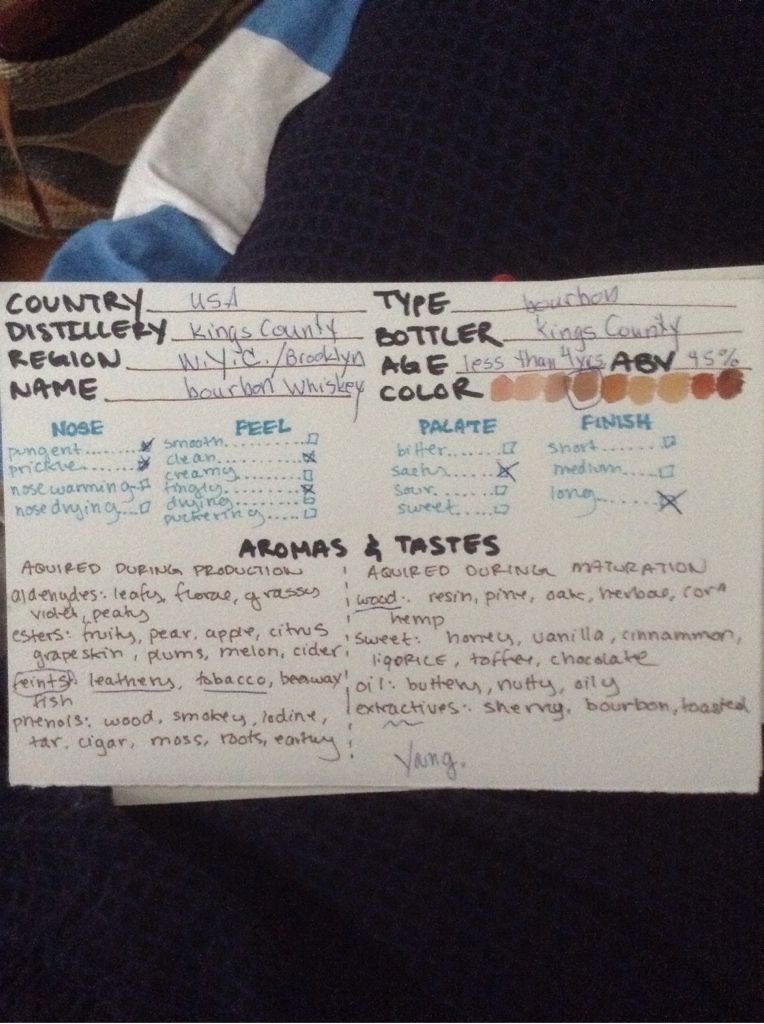 COUNTRY USA
DISTILLERY Kings County
REGION N.Y.C./Brooklyn
NAME bourbon Whiskey
TYPE bourbon
BOTTLER Kings County
AGE less than 4yrs ABV 45%
COLOR
NOSE
pungent
prickle
nose warming
nose drying
FEEL
smooth
clean
creamy
tingly
drying
puckering
PALATE
bitter
salty
sour
sweet
FINISH
short
medium
long
AROMAS & TASTES
AQUIRED DURING PRODUCTION
aldehydes: leafy, florae, grassy
violet, peaty
esters: fruity, pear, apple, citrus
grapeskin, plums, melon, cider
feints: leathery, tobacco, beeswax
fish
phenols: wood, smokey, iodine,
tar, cigar, moss, roots, earthy
AQUIRED DURING MATURATION
wood: resin, pine, oak, herbae, corn
hemp
sweet: honey, vanilla, cinnammon,
liqorice, toffee, chocolate
oil: buttery, nutty, oily
extractives: sherry, bourbon, toasted
Yang.